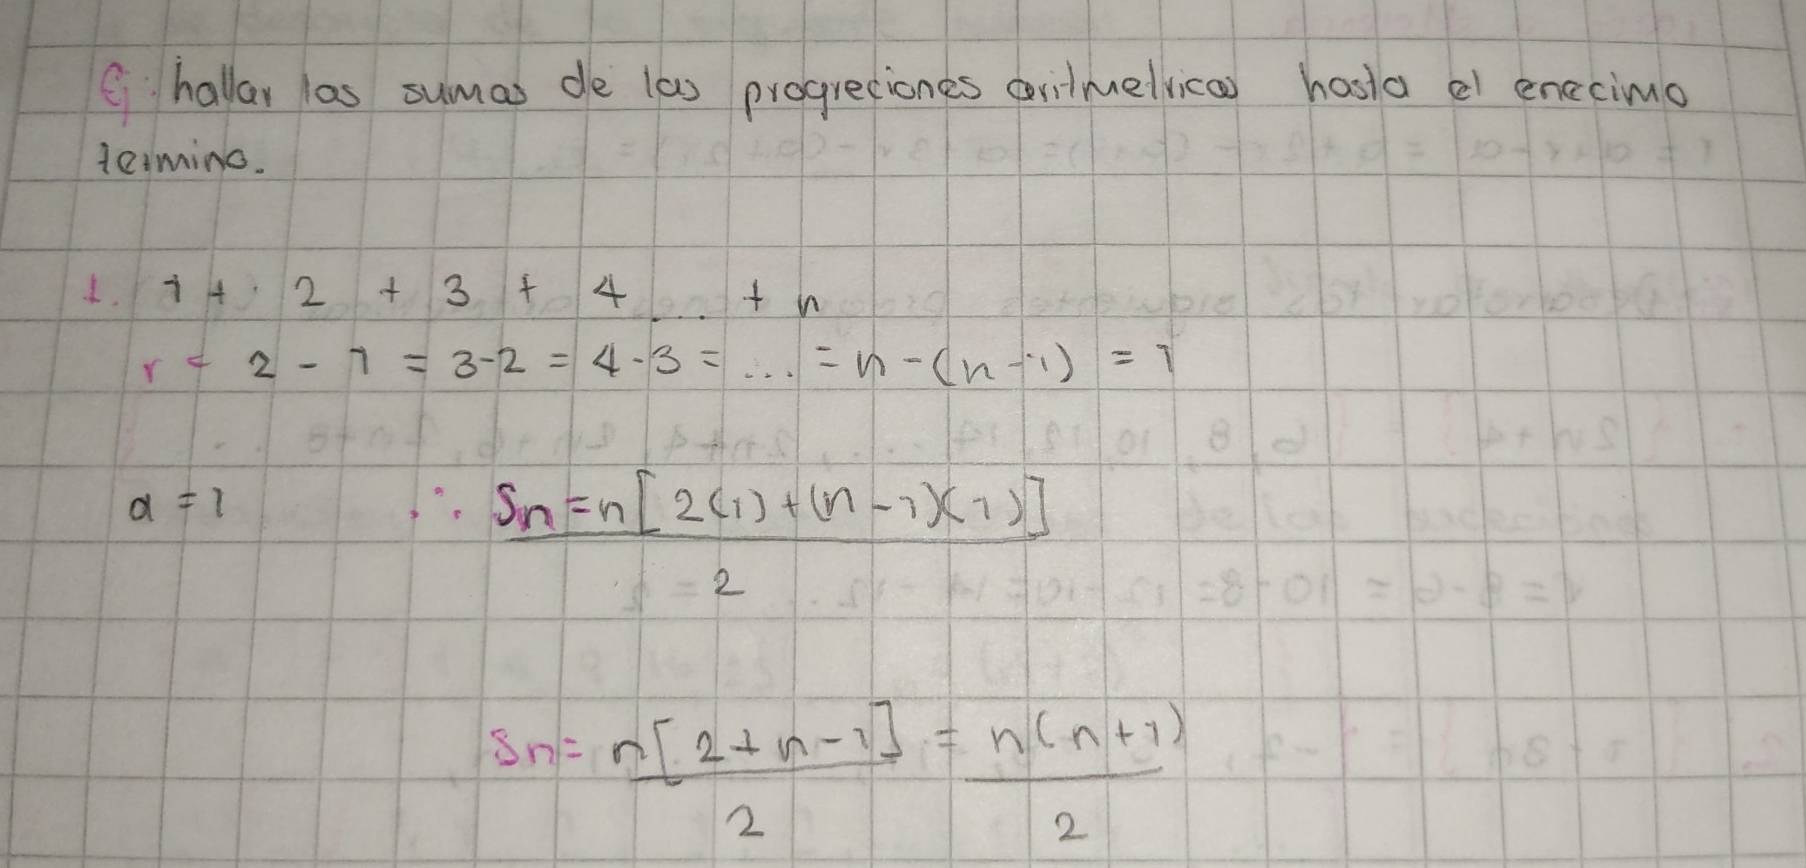 Ej: hallar las sumas de las progreciones aritmetricas hasta el enecimo
termino.
1. 1 + 2 + 3 + 4 ... + n
r = 2 - 1 = 3-2 = 4-3 = ... = n-(n-1) = 1
a = 1 ∴ Sn = n[2(1)+(n-1)(1)]
2
Sn = n[2+n-1] = n(n+1)
2 2